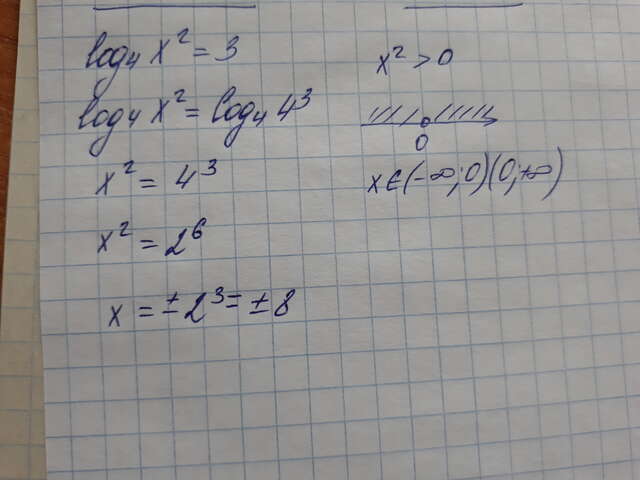 log₄ x² = 3
log₄ x² = log₄ 4³
x² = 4³
x² = 2⁶
x = ± 2³ = ± 8
x² > 0
0
x ∈ (-∞; 0)(0; +∞)